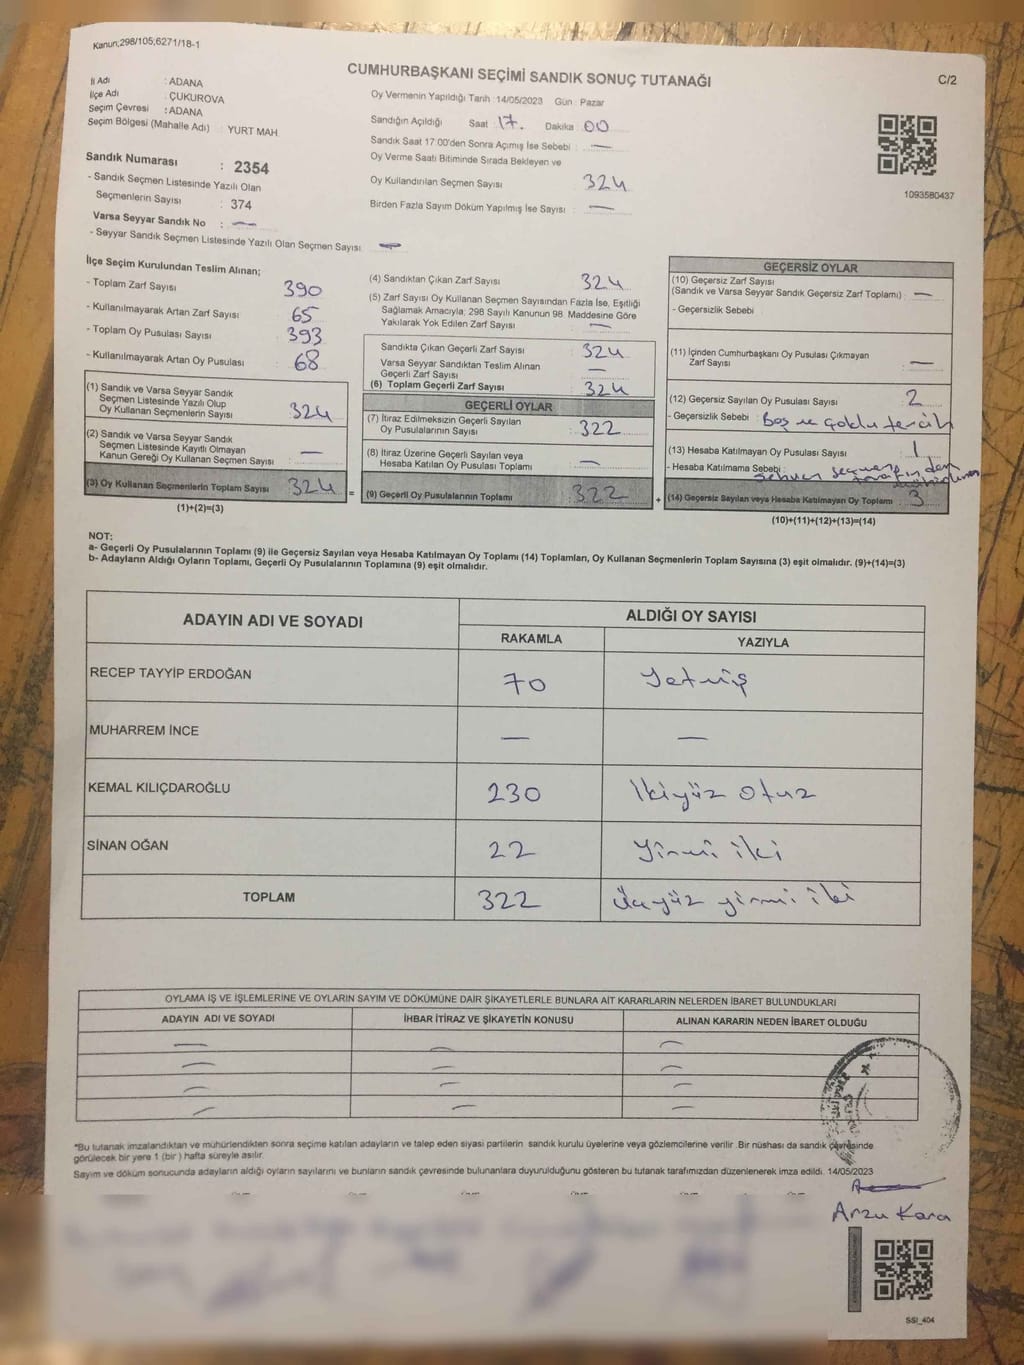 Kanun;298/105;6271/18-1
CUMHURBAŞKANI SEÇİMİ SANDIK SONUÇ TUTANAĞI
C/2
İl Adı : ADANA
İlçe Adı : ÇUKUROVA
Seçim Çevresi : ADANA
Seçim Bölgesi (Mahalle Adı) YURT MAH.
Sandık Numarası : 2354
- Sandık Seçmen Listesinde Yazılı Olan
Seçmenlerin Sayısı : 374
Varsa Seyyar Sandık No : —
- Seyyar Sandık Seçmen Listesinde Yazılı Olan Seçmen Sayısı —
Oy Vermenin Yapıldığı Tarih :14/05/2023 Gün : Pazar
Sandığın Açıldığı Saat : 17. Dakika : 00
Sandık Saat 17:00'den Sonra Açımış İse Sebebi : —
Oy Verme Saati Bitiminde Sırada Bekleyen ve
Oy Kullandırılan Seçmen Sayısı 324
Birden Fazla Sayım Döküm Yapılmış İse Sayısı : —
1093580437
İlçe Seçim Kurulundan Teslim Alınan;
- Toplam Zarf Sayısı 390
- Kullanılmayarak Artan Zarf Sayısı 65
- Toplam Oy Pusulası Sayısı 393
- Kullanılmayarak Artan Oy Pusulası 68
(1) Sandık ve Varsa Seyyar Sandık
Seçmen Listesinde Yazılı Olup
Oy Kullanan Seçmenlerin Sayısı 324
(2) Sandık ve Varsa Seyyar Sandık
Seçmen Listesinde Kayıtlı Olmayan
Kanun Gereği Oy Kullanan Seçmen Sayısı —
(3) Oy Kullanan Seçmenlerin Toplam Sayısı 324
(1)+(2)=(3)
=
(4) Sandıktan Çıkan Zarf Sayısı 324
(5) Zarf Sayısı Oy Kullanan Seçmen Sayısından Fazla İse, Eşitliği
Sağlamak Amacıyla; 298 Sayılı Kanunun 98. Maddesine Göre
Yakılarak Yok Edilen Zarf Sayısı —
Sandıkta Çıkan Geçerli Zarf Sayısı 324
Varsa Seyyar Sandıktan Teslim Alınan
Geçerli Zarf Sayısı —
(6) Toplam Geçerli Zarf Sayısı 324
GEÇERLİ OYLAR
(7) İtiraz Edilmeksizin Geçerli Sayılan
Oy Pusulalarının Sayısı 322
(8) İtiraz Üzerine Geçerli Sayılan veya
Hesaba Katılan Oy Pusulası Toplamı —
(9) Geçerli Oy Pusulalarının Toplamı 322
+
GEÇERSİZ OYLAR
(10) Geçersiz Zarf Sayısı
(Sandık ve Varsa Seyyar Sandık Geçersiz Zarf Toplamı) : —
- Geçersizlik Sebebi
(11) İçinden Cumhurbaşkanı Oy Pusulası Çıkmayan
Zarf Sayısı —
(12) Geçersiz Sayılan Oy Pusulası Sayısı 2
- Geçersizlik Sebebi : Boş ve çoklu tercih
(13) Hesaba Katılmayan Oy Pusulası Sayısı 1
- Hesaba Katılmama Sebebi : sehven seçmen
tarafından
(14) Geçersiz Sayılan veya Hesaba Katılmayan Oy Toplamı : 3
(10)+(11)+(12)+(13)=(14)
NOT:
a- Geçerli Oy Pusulalarının Toplamı (9) ile Geçersiz Sayılan veya Hesaba Katılmayan Oy Toplamı (14) Toplamları, Oy Kullanan Seçmenlerin Toplam Sayısına (3) eşit olmalıdır. (9)+(14)=(3)
b- Adayların Aldığı Oyların Toplamı, Geçerli Oy Pusulalarının Toplamına (9) eşit olmalıdır.
ADAYIN ADI VE SOYADI
ALDIĞI OY SAYISI
RAKAMLA YAZIYLA
RECEP TAYYİP ERDOĞAN 70 Yetmiş
MUHARREM İNCE — —
KEMAL KILIÇDAROĞLU 230 İkiyüz otuz
SİNAN OĞAN 22 Yirmi iki
TOPLAM 322 Üçyüz yirmi iki
OYLAMA İŞ VE İŞLEMLERİNE VE OYLARIN SAYIM VE DÖKÜMÜNE DAİR ŞİKAYETLERLE BUNLARA AİT KARARLARIN NELERDEN İBARET BULUNDUKLARI
ADAYIN ADI VE SOYADI İHBAR İTİRAZ VE ŞİKAYETİN KONUSU ALINAN KARARIN NEDEN İBARET OLDUĞU
— — —
— — —
— — —
— — —
*Bu tutanak imzalandıktan ve mühürlendikten sonra seçime katılan adayların ve talep eden siyasi partilerin sandık kurulu üyelerine veya gözlemcilerine verilir. Bir nüshası da sandık çevresinde
görülecek bir yere 1 (bir) hafta süreyle asılır.
Sayım ve döküm sonucunda adayların aldığı oyların sayılarını ve bunların sandık çevresinde bulunanlara duyurulduğunu gösteren bu tutanak tarafımızdan düzenlenerek imza edildi. 14/05/2023
Arzu Kara
SSI_404